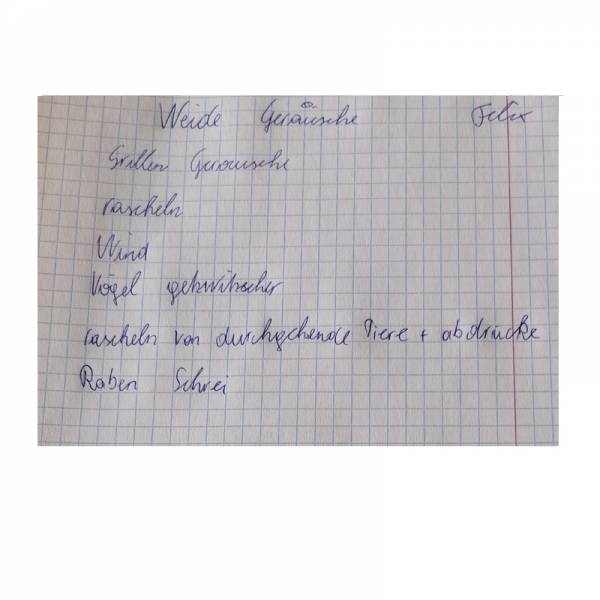 Weide Geräusche Felix
Grillen Geräusche
rascheln
Wind
Vögel gebzwitscher
rascheln von durchgehende Tiere + abdrücke
Raben Schrei